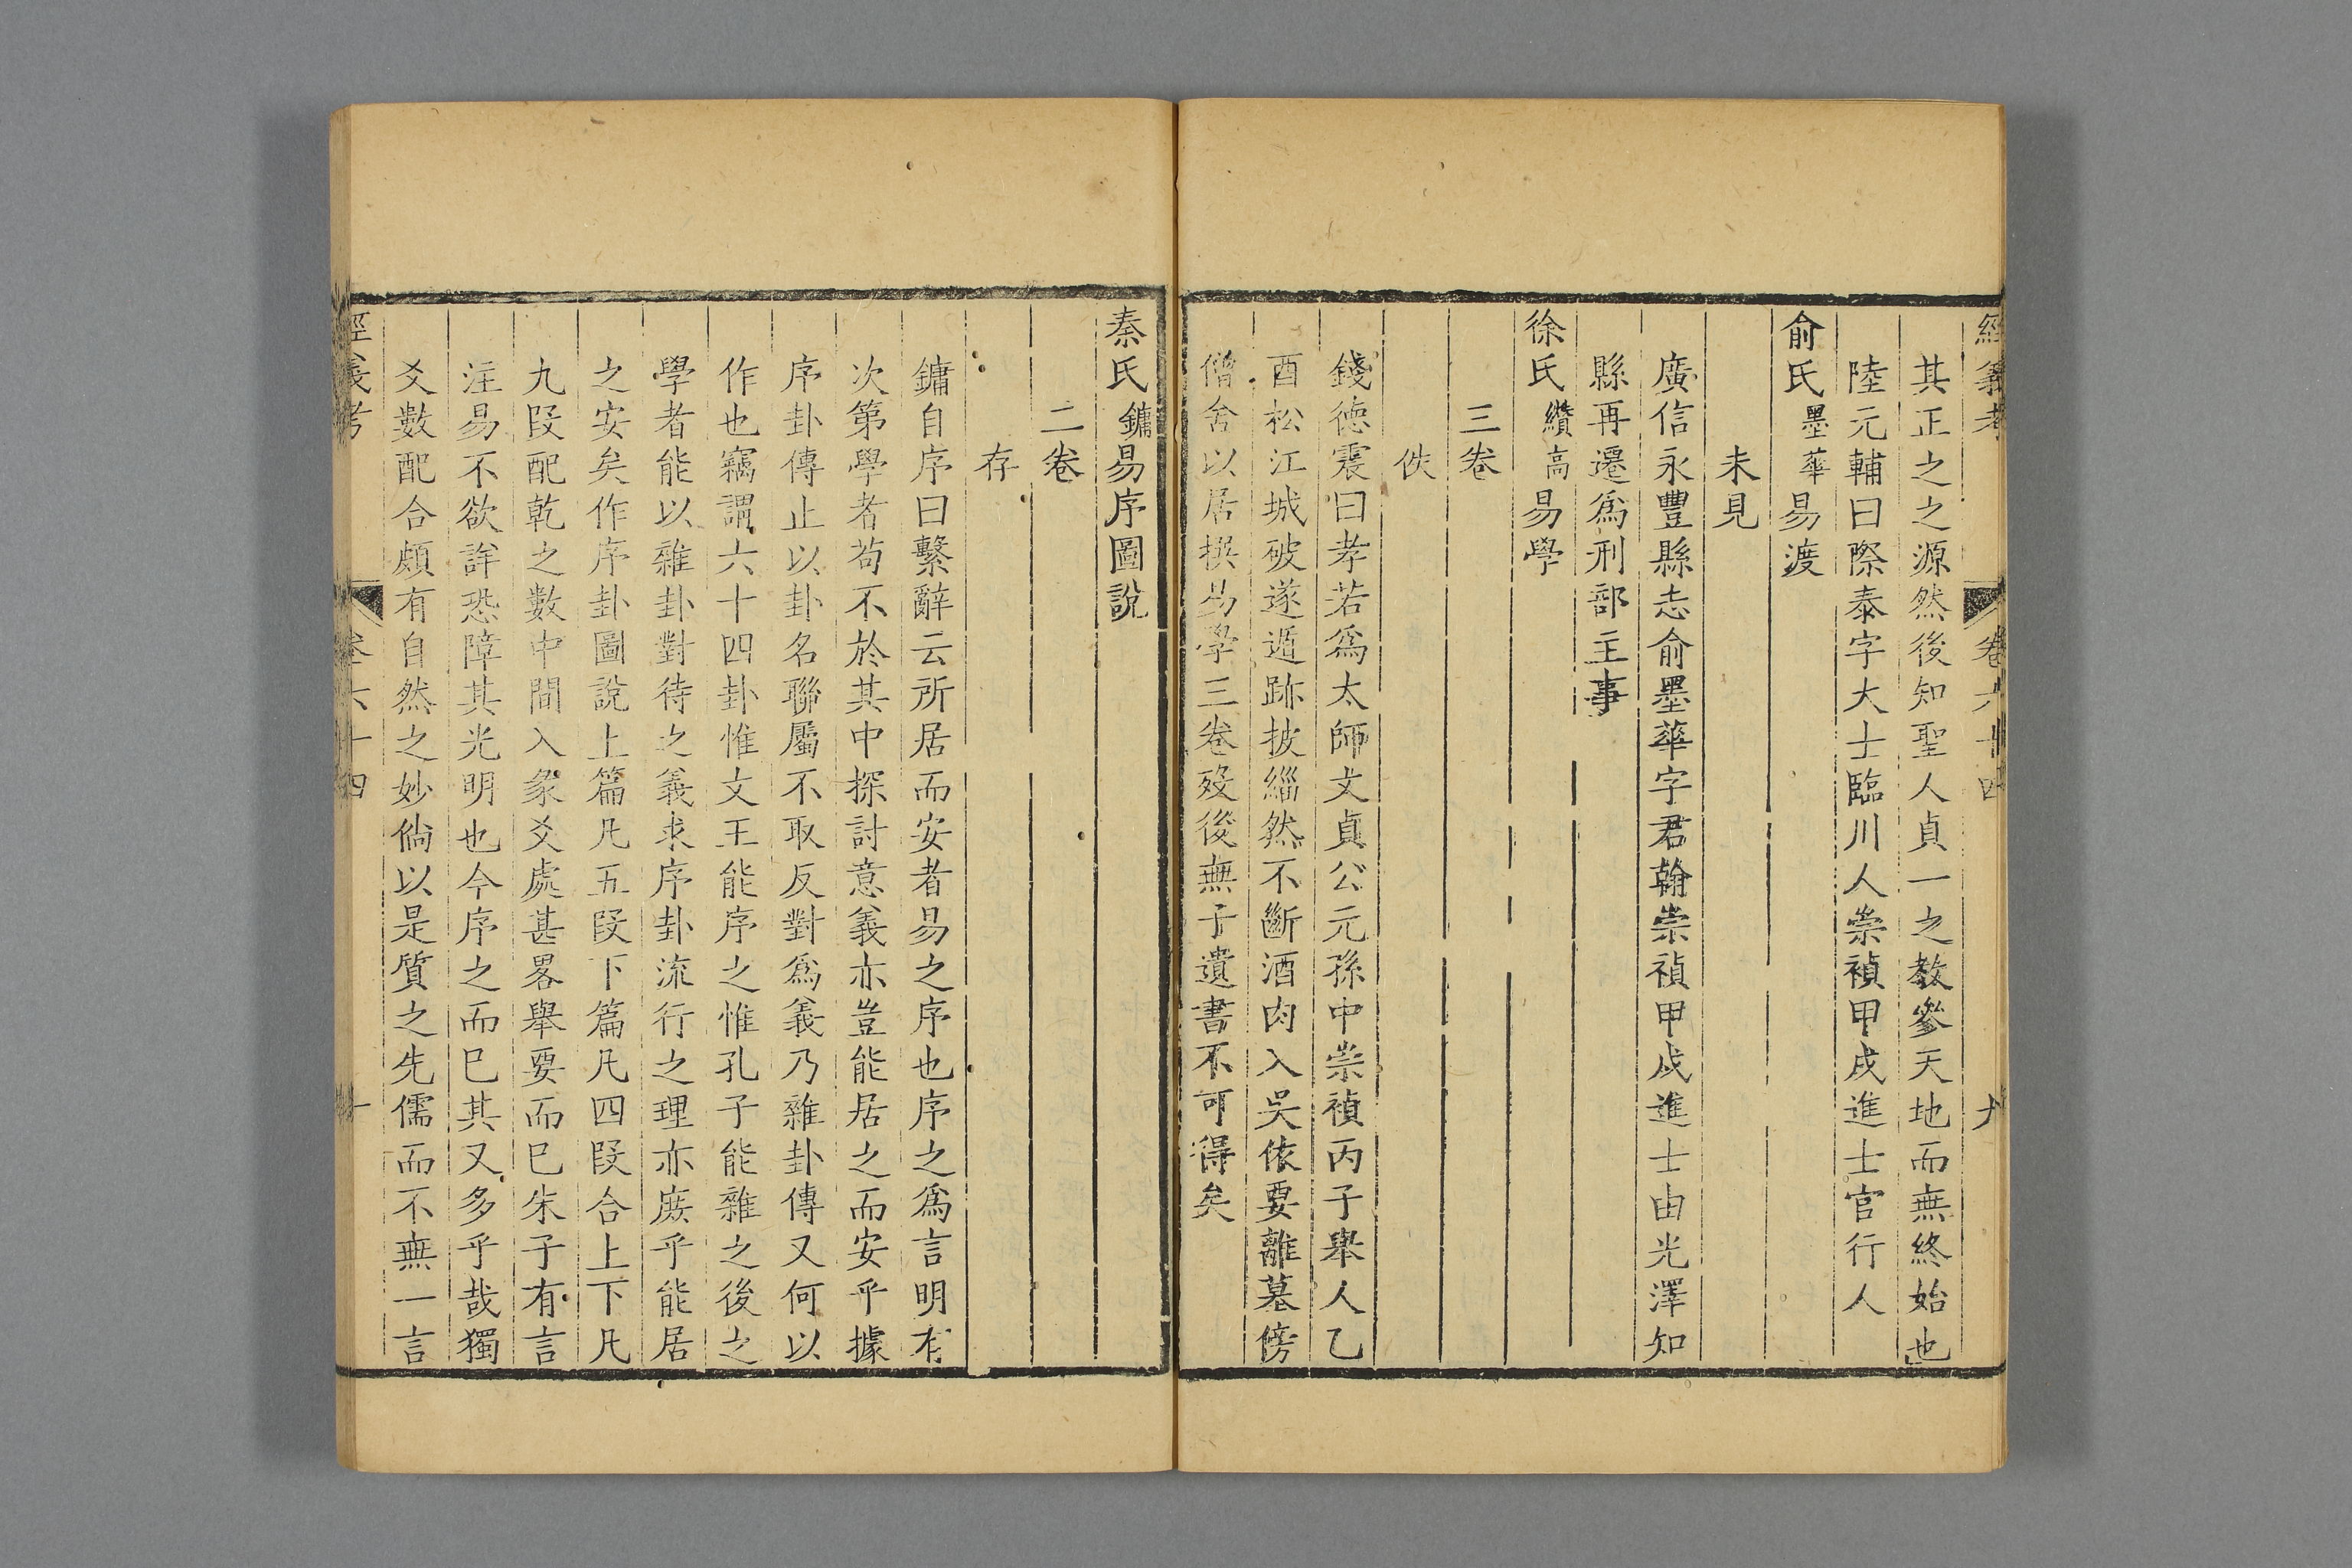 經義考 卷六十四 九
其正之之源然後知聖人貞一之教參天地而無終始也
陸元輔曰際泰字大士臨川人崇禎甲戌進士官行人
俞氏墨華易渡
未見
廣信永豐縣志俞墨華字君翰崇禎甲戌進士由光澤知
縣再遷爲刑部主事
徐氏纘高易學
三卷
佚
錢德震曰孝若爲太師文貞公元孫中崇禎丙子舉人乙
酉松江城破遂遁跡披緇然不斷酒肉入吳依要離墓傍
僧舍以居撰易學三卷歿後無子遺書不可得矣
秦氏鏞易序圖說
二卷
存
鏞自序曰繫辭云所居而安者易之序也序之爲言明有
次第學者苟不於其中探討意義亦豈能居之而安乎據
序卦傳止以卦名聯屬不取反對爲義乃雜卦傳又何以
作也竊謂六十四卦惟文王能序之惟孔子能雜之後之
學者能以雜卦對待之義求序卦流行之理亦庶乎能居
之安矣作序卦圖說上篇凡五段下篇凡四段合上下凡
九段配乾之數中間入彖爻處甚畧舉要而已朱子有言
注易不欲詳恐障其光明也今序之而已其又多乎哉獨
爻數配合頗有自然之妙倘以是質之先儒而不無一言
經義考 卷六十四 十